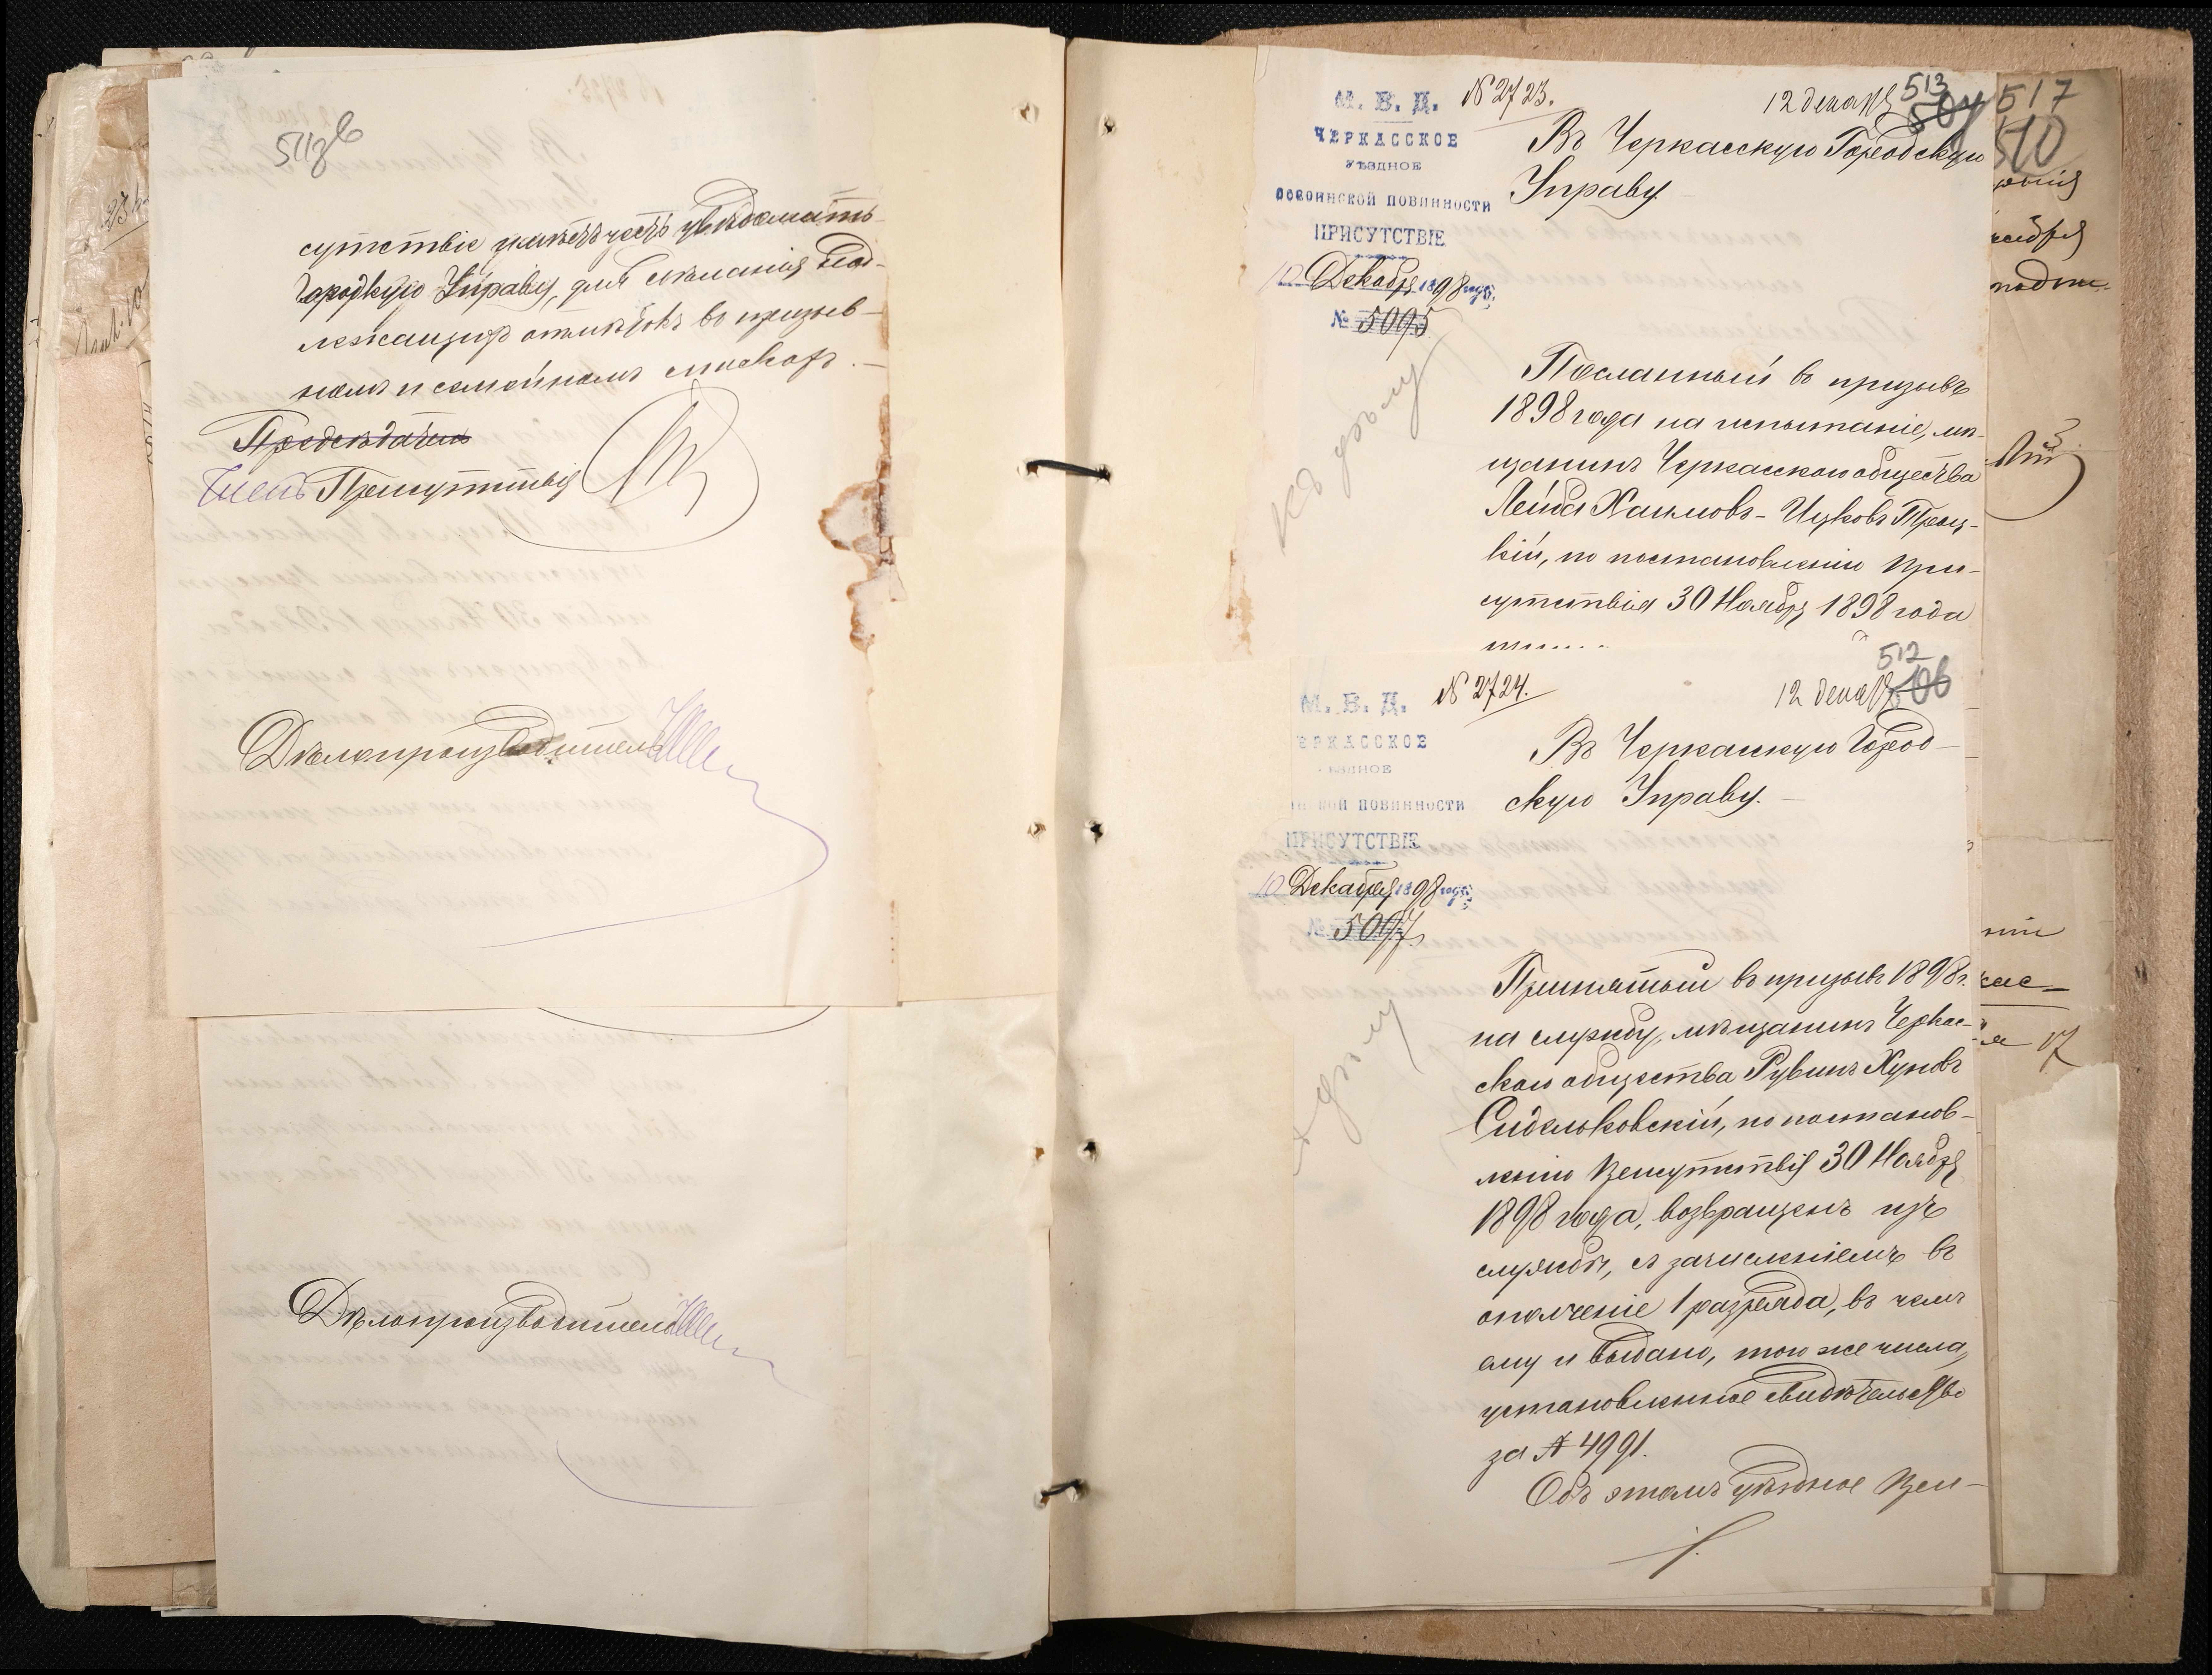 511об
сутствіе имѣетъ честь увѣдомить
Городскую Управу, для сдѣланія над-
лежащихъ отмѣтокъ въ призыв-
номъ и семейномъ спискахъ.
Предсѣдатель
Членъ Присутствія
Дѣлопроизводитель
Дѣлопроизводитель
М. В. Д.
ЧЕРКАССКОЕ
УѢЗДНОЕ
ПО ВОИНСКОЙ ПОВИННОСТИ
ПРИСУТСТВІЕ
10 Декабря 1898 года.
№ 5095
№ 2723.
12 декабря
513
504
Въ Черкасскую Городскую
Управу
Къ дѣлу
Посланный въ призывъ
1898 года на испытаніе, мѣ-
щанинъ Черкасскаго общества
Лейба Хаимовъ-Ицковъ Троц-
кій, по постановленію при-
сутствія 30 Ноября 1898 года
М. В. Д.
ЧЕРКАССКОЕ
УѢЗДНОЕ
ПОВИННОСТИ
ПРИСУТСТВІЕ
10 Декабря 1898 года.
№ 5097
№ 2724.
12 декабря
512
506
Въ Черкасскую Город-
скую Управу.
Къ дѣлу
Принятый въ призывъ 1898 г.
на службу, мѣщанинъ Черкас-
скаго общества Рувинъ Хуновъ
Сидельковскій, по постанов-
ленію Присутствія 30 Ноября
1898 года, возвращенъ изъ
службы, съ зачисленіемъ въ
ополченіе 1 разряда, въ чемъ
ему и выдано, того же числа,
установленное свидѣтельство
за № 4991.
Объ этомъ уѣздное При-
517
510